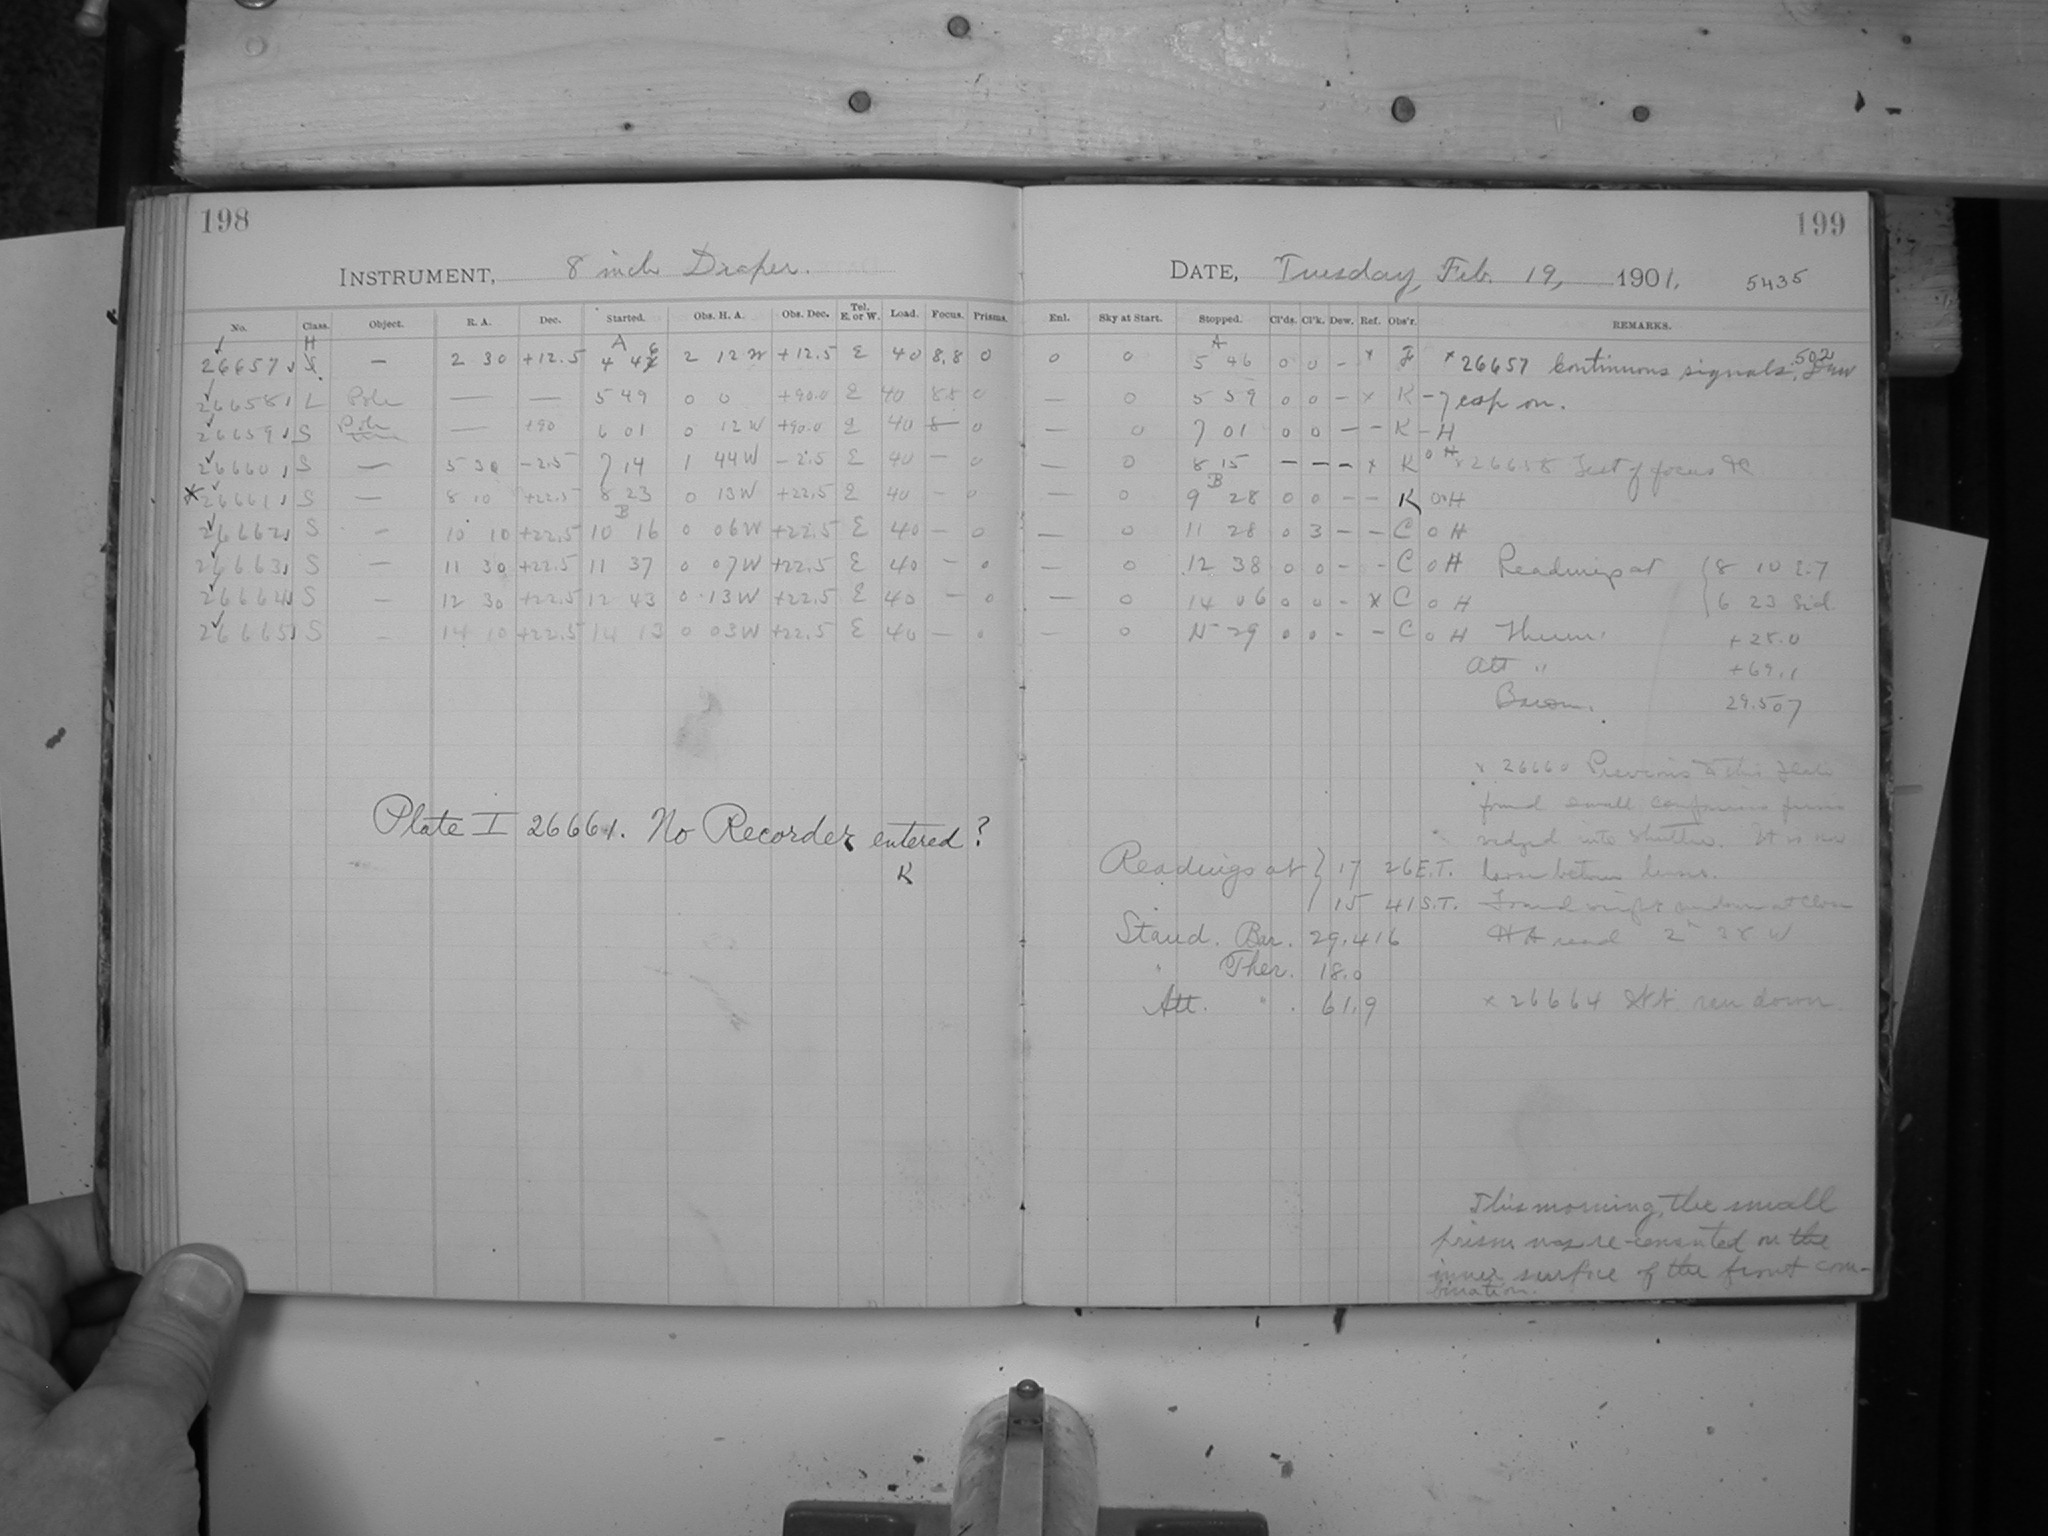 198
199
INSTRUMENT, 8 inch Draper.
DATE, Tuesday, Feb. 19, 1901. 5435
No. Class. Object. R. A. Dec. Started. Obs. H. A. Obs. Dec. Tel. E. or W. Load. Focus. Prisms.
Enl. Sky at Start. Stopped. Cl'ds. Cl'k. Dew. Ref. Obs'r. REMARKS.
H A A
26657 — 2 30 +12.5 4 46 2 12 W +12.5 E 40 8.8 0 0 0 5 46 0 0 – x F x 26657 Continuous signals.
26658 L Pole — — 5 49 0 0 +90.0 E 40 8.8 0 — 0 5 59 0 0 – x K – exp on.
26659 S Pole — +90 6 01 0 12 W +90.0 E 40 8 0 — 0 7 01 0 0 – – K – H
26660 S — 5 30 –2.5 7 14 1 44 W –2.5 E 40 – 0 — 0 8 15 – – – x K 0 H x 26658 Test of focus
26661 S — 8 10 +22.5 8 23 0 13 W +22.5 E 40 – 0 — 0 9 28 0 0 – – K 0 H
B B
26662 S – 10 10 +22.5 10 16 0 06 W +22.5 E 40 – 0 — 0 11 28 0 3 – – C 0 H
26663 S – 11 30 +22.5 11 37 0 07 W +22.5 E 40 – 0 — 0 12 38 0 0 – – C 0 H Readings at 8 10 E.T
26664 S – 12 30 +22.5 12 43 0 13 W +22.5 E 40 – 0 — 0 14 06 0 0 – x C 0 H 6 23 Sid.
26665 S – 14 10 +22.5 14 13 0 03 W +22.5 E 40 – 0 — 0 29 0 0 – – C 0 H Therm. +28.0
Att " +69.1
Barom. 29.507
Plate I 26661. No Recorder entered?
K
x 26660 Previous to this plate
found small
into shutter. It is now
loose between lenses.
Found weight run down at close
HA read 2h 38 W
Readings at 17 26 E.T.
15 41 S.T.
Stand. Bar. 29.416
" Ther. 18.0
Att. " . 61.9
x 26664 run down.
This morning, the small
prism was re-cemented on the
inner surface of the front com-
bination.